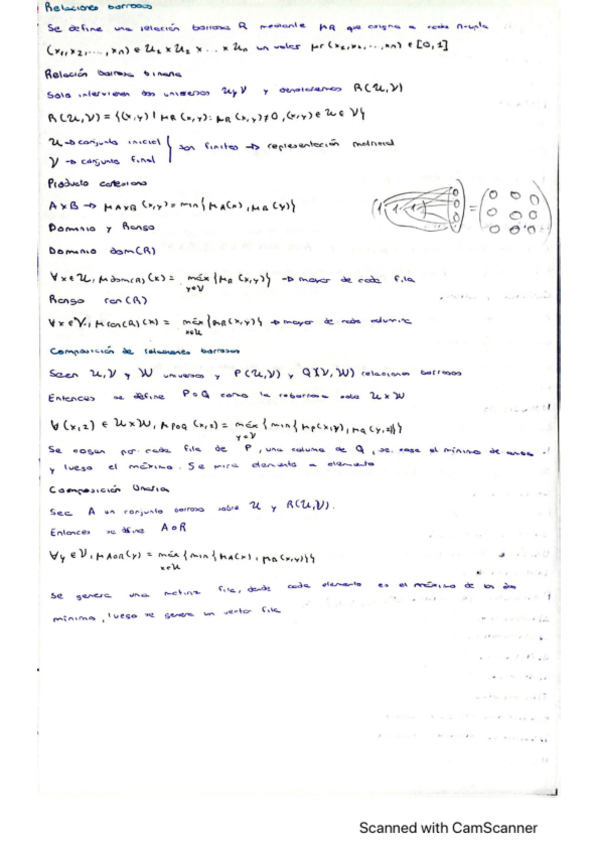 Relaciones borrosas
Se define una relación borrosa R mediante μR que asigna a cada n-upla
(x₁,x₂,...,xn) ∈ U₁ x U₂ x ... x Un un valor μR(x₁,x₂,...,xn) ∈ [0,1]
Relación borrosa binaria
Solo intervienen dos universos U y V y denotaremos R(U,V)
R(U,V) = {(x,y) | μR(x,y): μR(x,y)≠0, (x,y) ∈ U ∈ V}
U → conjunto inicial } son finitos → representación matricial
V → conjunto final
Producto cartesiano
AxB → μAxB(x,y) = min{μA(x), μB(y)}
Dominio y Rango
Dominio dom(R)
∀x∈U, μdom(R)(x) = máx{μR(x,y)} → mayor de cada fila
y∈V
Rango ran(R)
∀x∈V, μran(R)(x) = máx{μR(x,y)} → mayor de cada columna
x∈U
Composición de relaciones borrosas
Sean U,V y W universos y P(U,V) y Q(V,W) relaciones borrosas
Entonces se define P∘Q como la borrosa sobre UxW
∀(x,z) ∈ UxW, μP∘Q(x,z) = máx{min{μP(x,y), μQ(y,z)}}
y∈V
Se cogen por cada fila de P, una columna de Q, se coge el mínimo de
y luego el máximo. Se mira elemento a elemento
Composición Unaria
Sea A un conjunto borroso sobre U y R(U,V).
Entonces se define A∘R
∀y∈V, μA∘R(y) = máx{min{μA(x), μR(x,y)}}
x∈U
Se genera una matriz fila, donde cada elemento es el máximo de los dos
mínimo, luego se genera un vector fila
Scanned with CamScanner